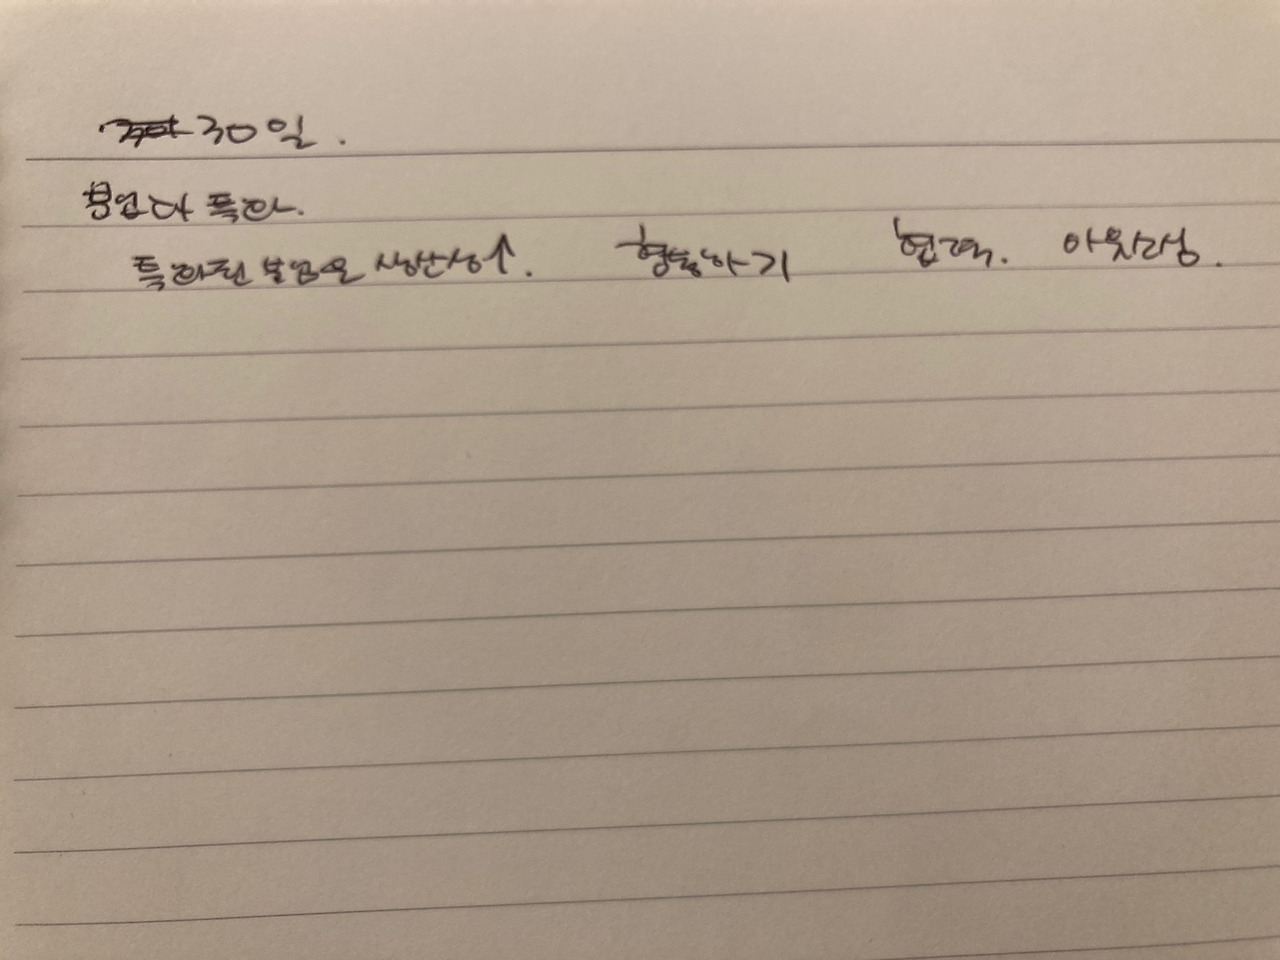 30일.
분업과 특화.
특화된 분업은 생산성↑. 협동하기 협력. 아웃라싱.